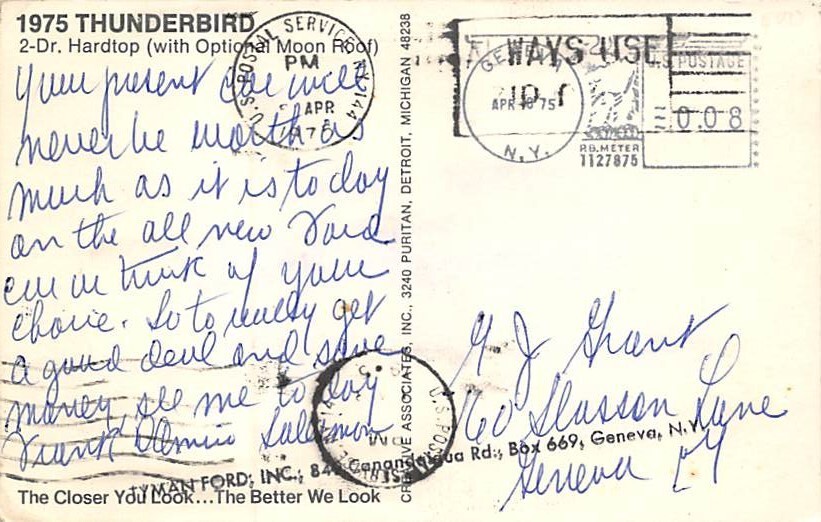 1975 THUNDERBIRD
2-Dr. Hardtop (with Optional Moon Roof)
Your present car will
never be worth as
much as it is today
on the all new Ford
car or truck of your
choice. So to really get
a good deal and save
money, see me today
Frank Salesman
The Closer You Look...The Better We Look
U.S. POSTAL SERVICE, NY 144
PM
APR
1975
CREATIVE ASSOCIATES, INC., 3240 PURITAN, DETROIT, MICHIGAN 48238
WAYS USE
GENEVA
APR 18 '75
N.Y.
U.S. POSTAGE
0.08
P.B. METER
1127875
G J Grant
60 Slosson Lane
Geneva NY
LYMAN FORD, INC., Canandaigua Rd., Box 669, Geneva, N.Y.